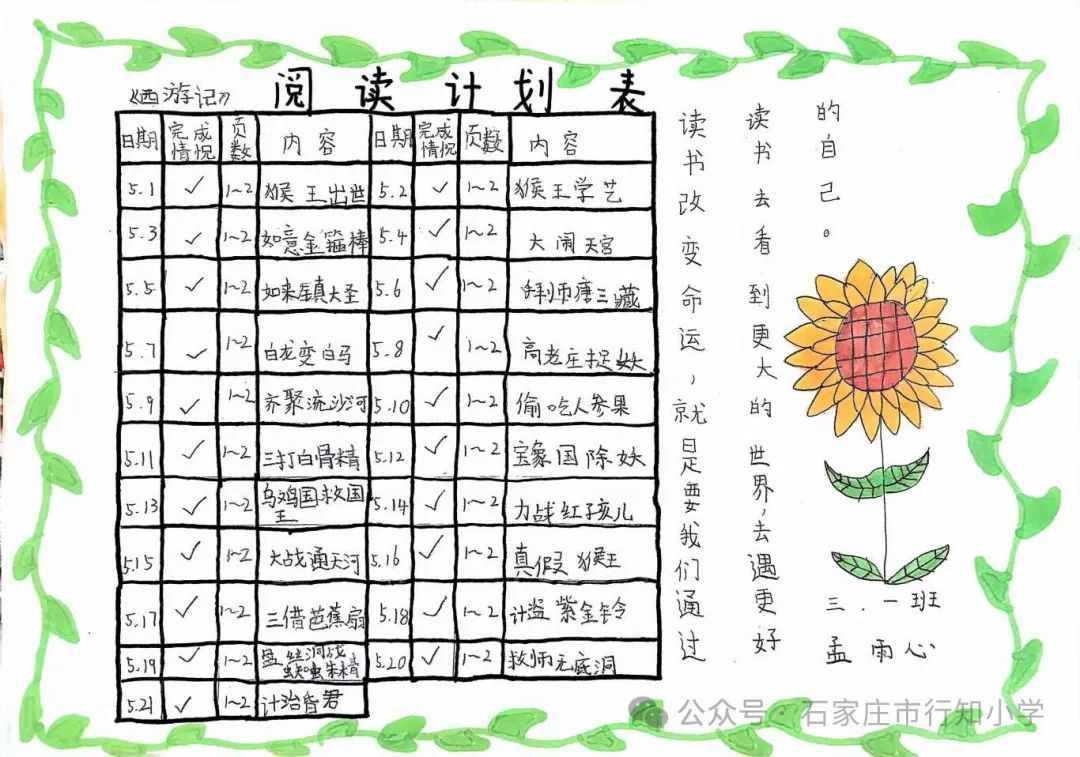 《西游记》 阅读计划表
日期 完成情况 页数 内容 日期 完成情况 页数 内容
5.1 ✓ 1~2 猴王出世 5.2 ✓ 1~2 猴王学艺
5.3 ✓ 1~2 如意金箍棒 5.4 ✓ 1~2 大闹天宫
5.5 ✓ 1~2 如来镇大圣 5.6 ✓ 1~2 拜师唐三藏
5.7 ✓ 1~2 白龙变白马 5.8 ✓ 1~2 高老庄捉妖
5.9 ✓ 1~2 齐聚流沙河 5.10 ✓ 1~2 偷吃人参果
5.11 ✓ 1~2 三打白骨精 5.12 ✓ 1~2 宝象国除妖
5.13 ✓ 1~2 乌鸡国救国王 5.14 ✓ 1~2 力战红孩儿
5.15 ✓ 1~2 大战通天河 5.16 ✓ 1~2 真假猴王
5.17 ✓ 1~2 三借芭蕉扇 5.18 ✓ 1~2 计盗紫金铃
5.19 ✓ 1~2 丝洞战蜘蛛精 5.20 ✓ 1~2 救师无底洞
5.21 ✓ 1~2 计治昏君
读书改变命运,就是要我们通过
读书去看到更大的世界,去遇更好
的自己。
三.一班
孟雨心
公众号·石家庄市行知小学